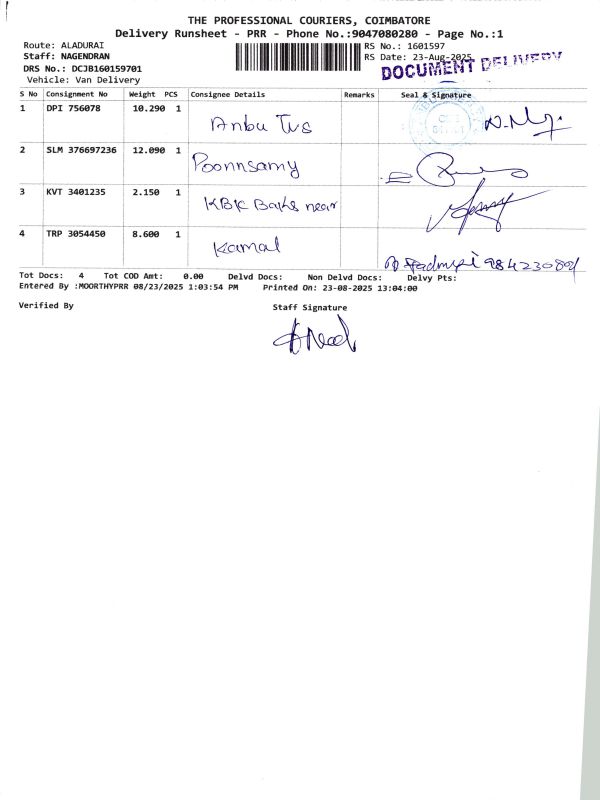 THE PROFESSIONAL COURIERS, COIMBATORE
Delivery Runsheet - PRR - Phone No.:9047080280 - Page No.:1
Route: ALADURAI
RS No.: 1601597
Staff: NAGENDRAN
RS Date: 23-Aug-2025
DRS No.: DCJB160159701
DOCUMENT DELIVERY
Vehicle: Van Delivery
S No Consignment No Weight PCS Consignee Details Remarks Seal & Signature
1 DPI 756078 10.290 1 Anbu Tvs
2 SLM 376697236 12.090 1 Poonnsamy
3 KVT 3401235 2.150 1 KBK near
4 TRP 3054450 8.600 1 Kamal
Tot Docs: 4 Tot COD Amt: 0.00 Delvd Docs: Non Delvd Docs: Delvy Pts:
Entered By :MOORTHYPRR 08/23/2025 1:03:54 PM Printed On: 23-08-2025 13:04:00
Verified By Staff Signature